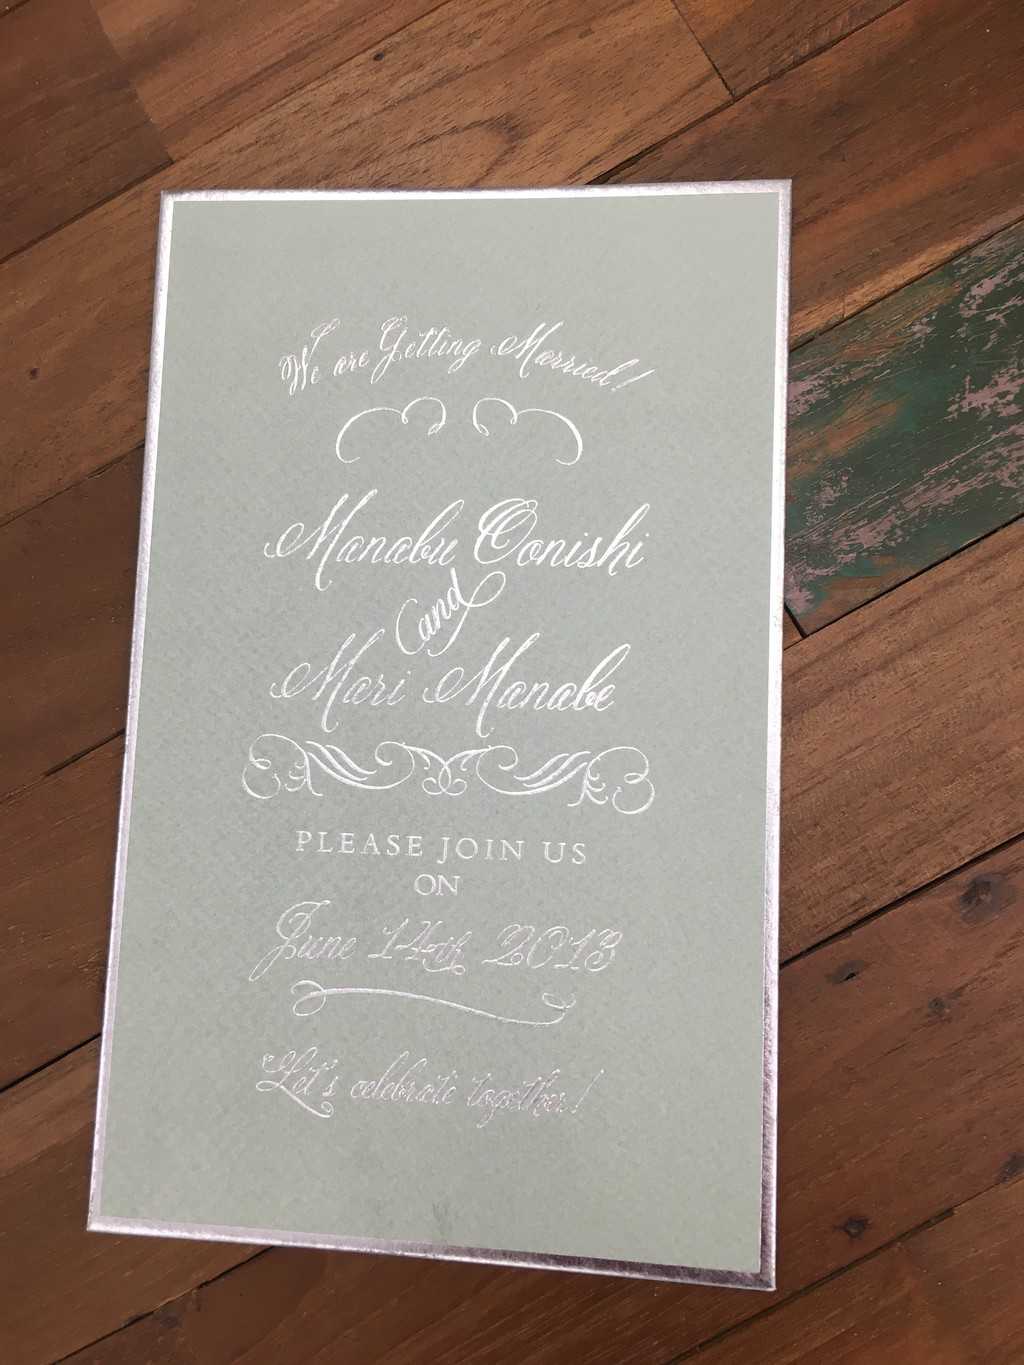 We are Getting Married!
Manabu Oonishi
and
Mari Manabe
PLEASE JOIN US
ON
June 14th 2013
Let's celebrate together!